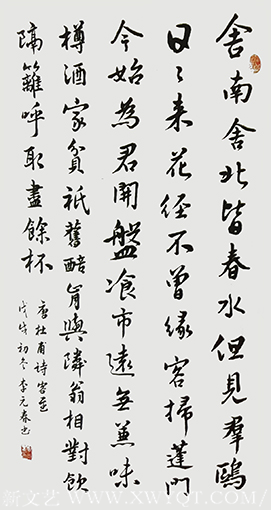 舍南舍北皆春水但見羣鷗
日々来花径不曾緣客掃蓬門
今始為君開盤飡市遠無兼味
樽酒家貧祇舊醅肯與隣翁相對飲
隔籬呼取盡餘杯
唐杜甫詩客至
戊戌初冬李元春书
新文艺 WWW.XWYQT.COM/